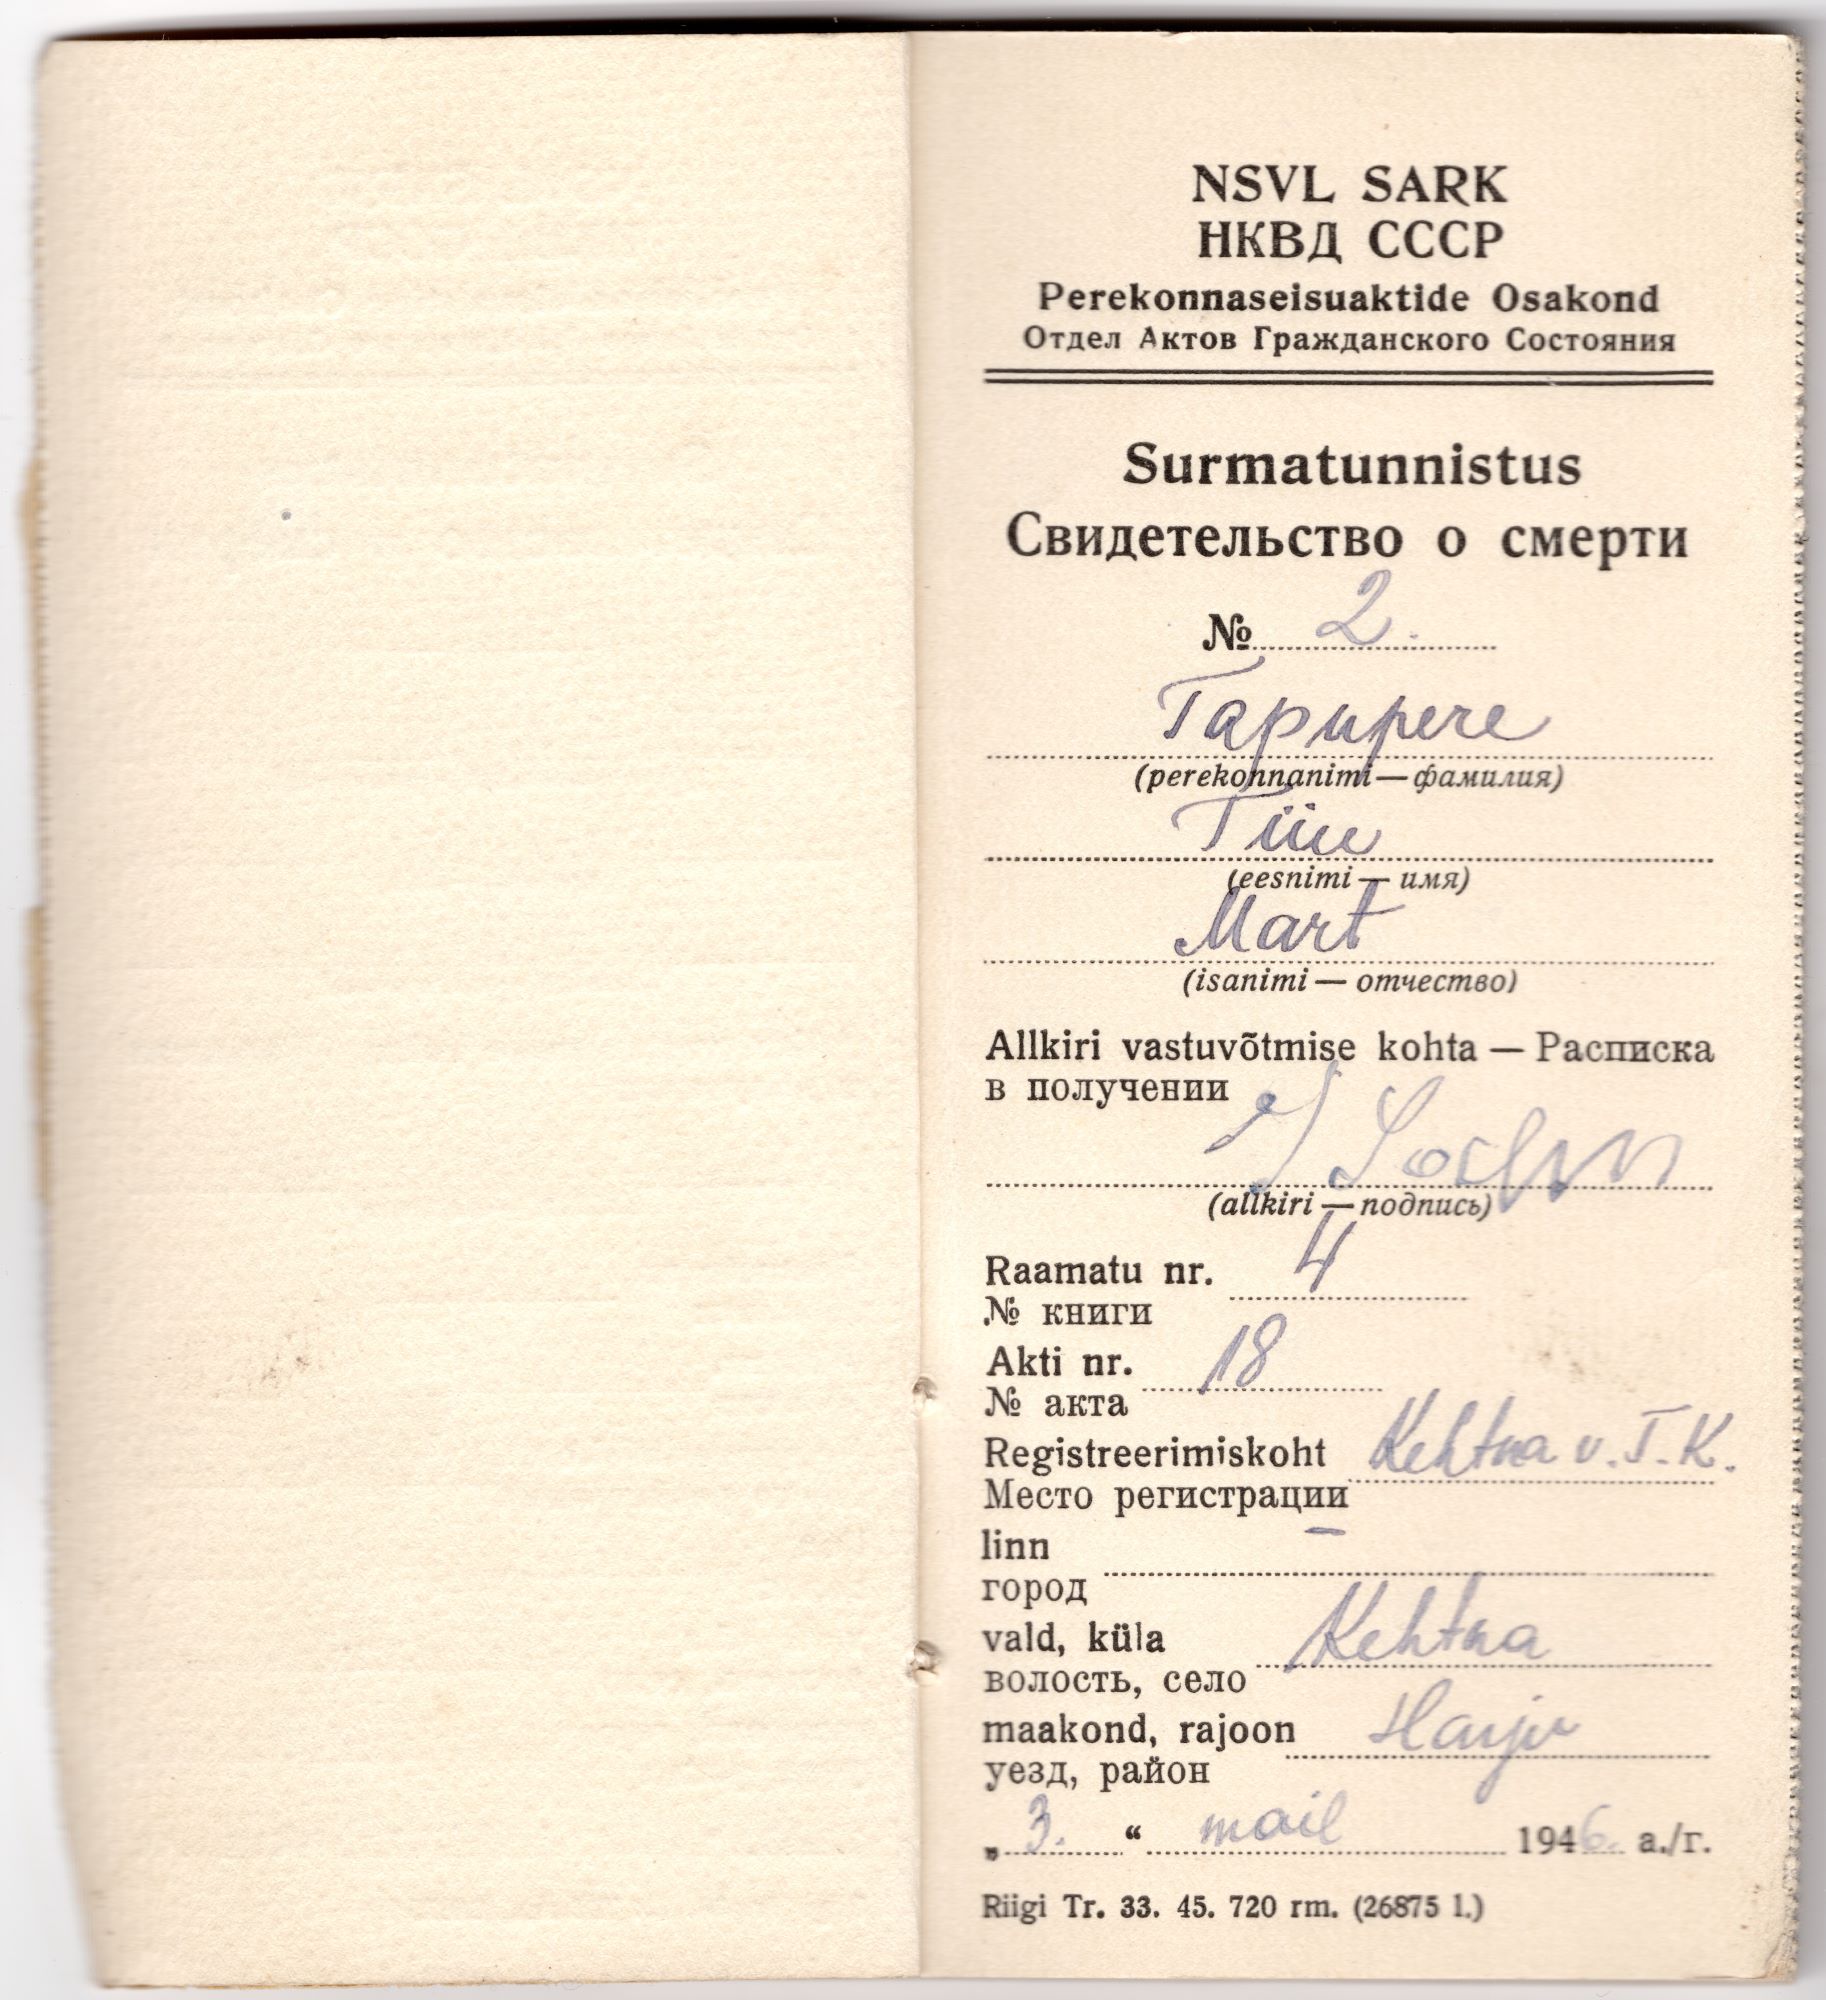 NSVL SARK
НКВД СССР
Perekonnaseisuaktide Osakond
Отдел Актов Гражданского Состояния
Surmatunnistus
Свидетельство о смерти
№ 2.
Tapupere
(perekonnanimi — фамилия)
Tiiu
(eesnimi — имя)
Mart
(isanimi — отчество)
Allkiri vastuvõtmise kohta — Расписка
в получении
(allkiri — подпись)
Raamatu nr. 4
№ книги
Akti nr. 18
№ акта
Registreerimiskoht Kehtna v. T. K.
Место регистрации
linn –
город
vald, küla Kehtna
волость, село
maakond, rajoon Harju
уезд, район
„ 3. “ mail 1946. a./г.
Riigi Tr. 33. 45. 720 rm. (26875 l.)